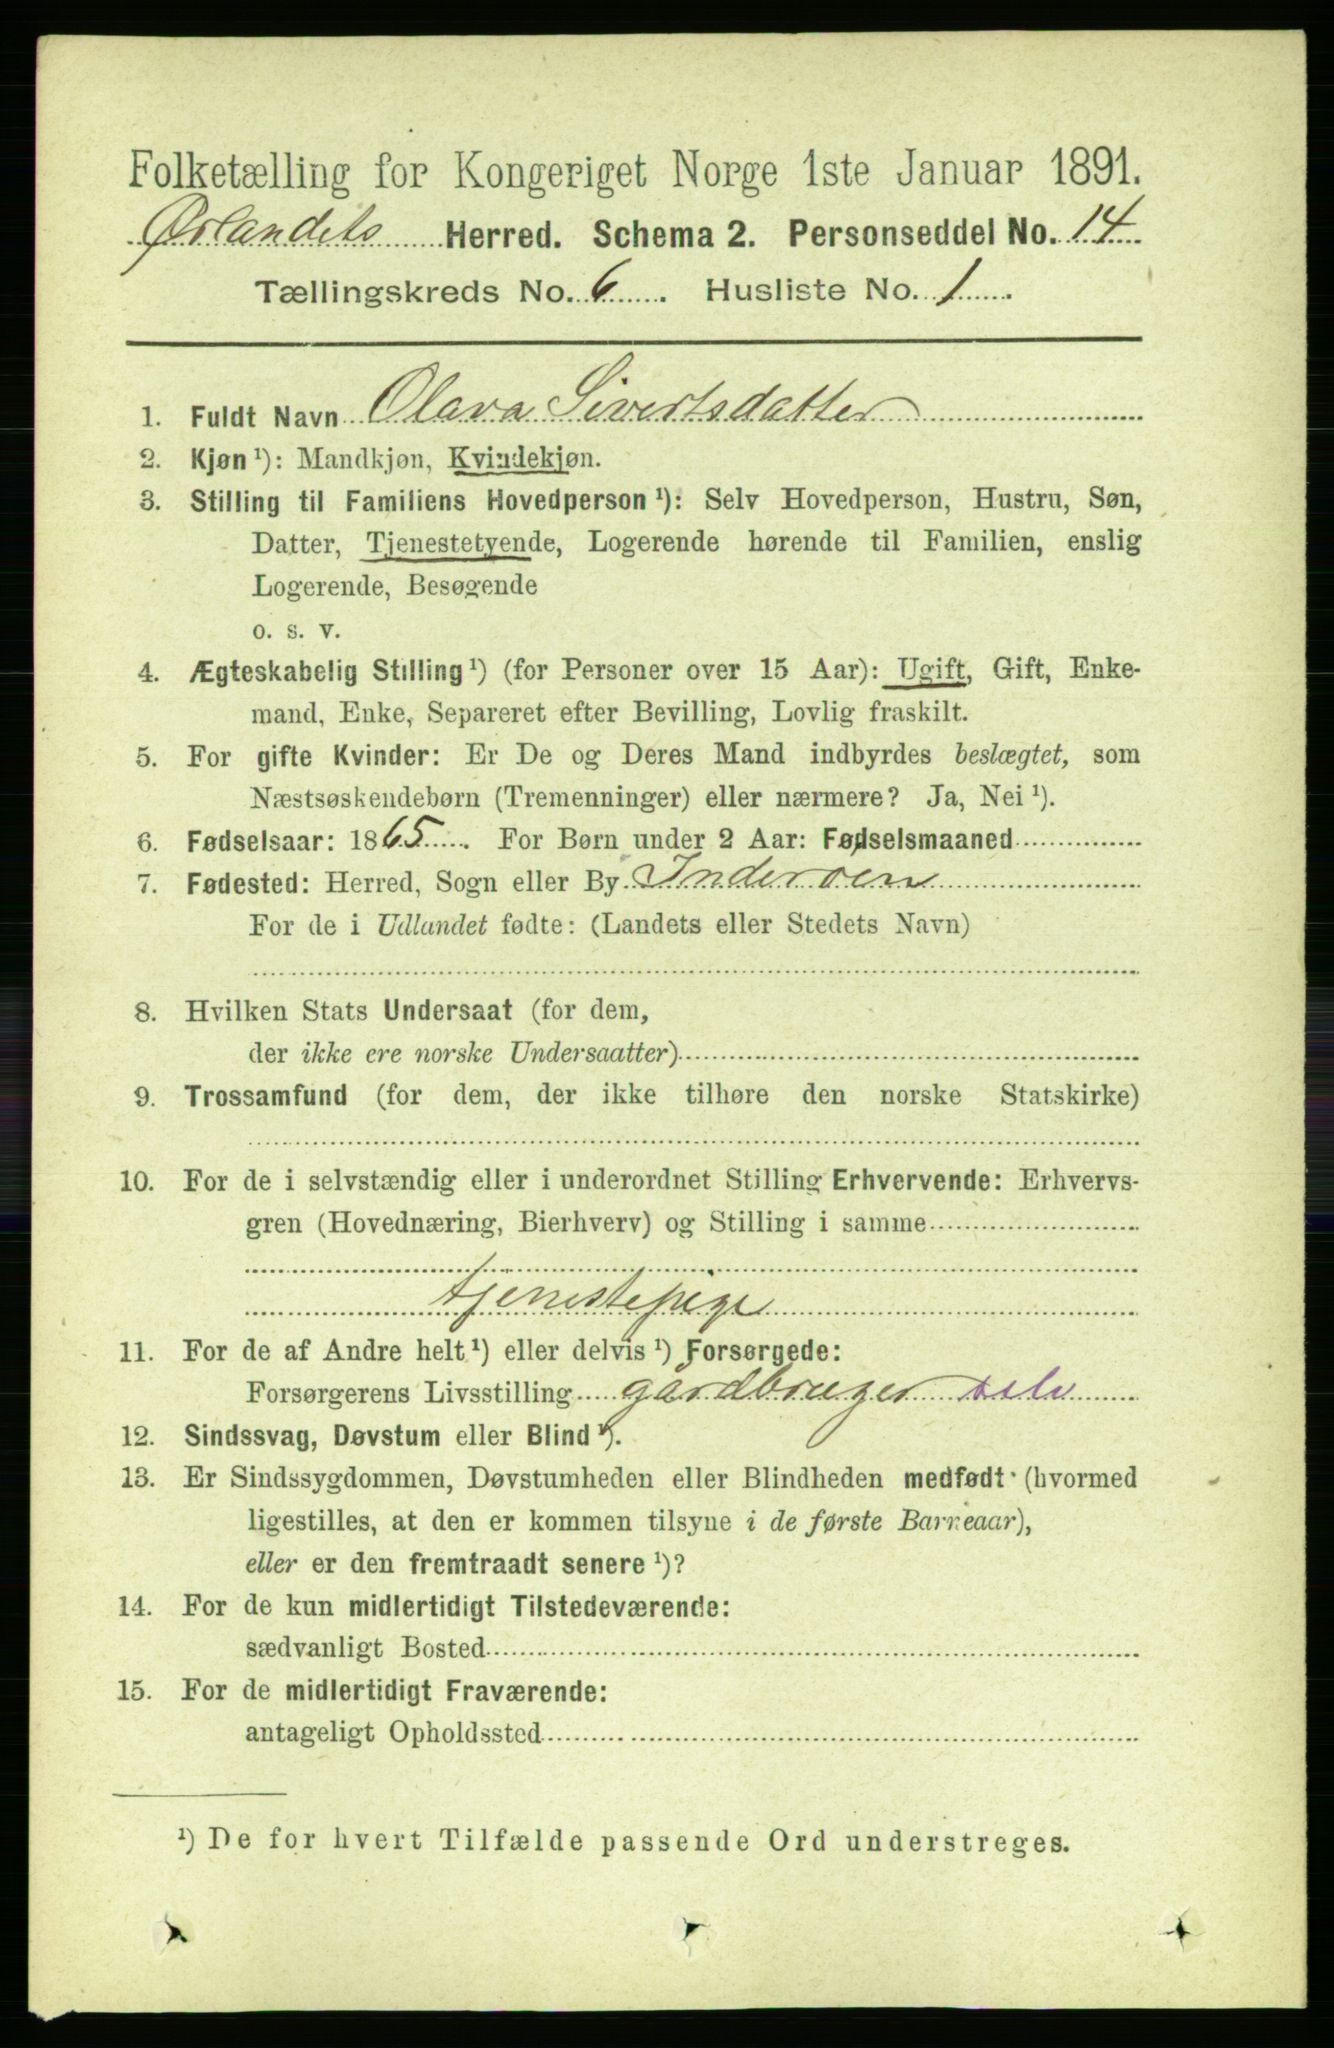 Folketælling for Kongeriget Norge 1ste Januar 1891.
Ørlandets Herred. Schema 2. Personseddel No. 14
Tællingskreds No. 6. Husliste No. 1.
1. Fuldt Navn Olava Sivertsdatter
2. Kjøn ¹): Mandkjøn, Kvindekjøn.
3. Stilling til Familiens Hovedperson ¹): Selv Hovedperson, Hustru, Søn,
Datter, Tjenestetyende, Logerende hørende til Familien, enslig
Logerende, Besøgende
o. s. v.
4. Ægteskabelig Stilling ¹) (for Personer over 15 Aar): Ugift, Gift, Enke-
mand, Enke, Separeret efter Bevilling, Lovlig fraskilt.
5. For gifte Kvinder: Er De og Deres Mand indbyrdes beslægtet, som
Næstsøskendebørn (Tremenninger) eller nærmere? Ja, Nei ¹).
6. Fødselsaar: 1865. For Børn under 2 Aar: Fødselsmaaned
7. Fødested: Herred, Sogn eller By Inderøen
For de i Udlandet fødte: (Landets eller Stedets Navn)
8. Hvilken Stats Undersaat (for dem,
der ikke ere norske Undersaatter)
9. Trossamfund (for dem, der ikke tilhøre den norske Statskirke)
10. For de i selvstændig eller i underordnet Stilling Erhvervende: Erhvervs-
gren (Hovednæring, Bierhverv) og Stilling i samme
tjenestepige
11. For de af Andre helt ¹) eller delvis ¹) Forsørgede:
Forsørgerens Livsstilling gårdbruger selv
12. Sindssvag, Døvstum eller Blind ¹).
13. Er Sindssygdommen, Døvstumheden eller Blindheden medfødt (hvormed
ligestilles, at den er kommen tilsyne i de første Barneaar),
eller er den fremtraadt senere ¹)?
14. For de kun midlertidigt Tilstedeværende:
sædvanligt Bosted
15. For de midlertidigt Fraværende:
antageligt Opholdssted
¹) De for hvert Tilfælde passende Ord understreges.